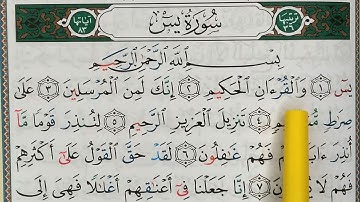 ترتيبها ٣٦ سُورَةُ يسٓ آياتها ٨٣
بِسْمِ ٱللَّهِ ٱلرَّحْمَٰنِ ٱلرَّحِيمِ
يسٓ ١ وَٱلْقُرْءَانِ ٱلْحَكِيمِ ٢ إِنَّكَ لَمِنَ ٱلْمُرْسَلِينَ ٣ عَلَىٰ
صِرَٰطٍ ٤ تَنزِيلَ ٱلْعَزِيزِ ٱلرَّحِيمِ ٥ لِتُنذِرَ قَوْمًا مَّآ
أُنذِرَ فَهُمْ غَٰفِلُونَ ٦ لَقَدْ حَقَّ ٱلْقَوْلُ عَلَىٰٓ أَكْثَرِهِمْ
فَهُمْ لَا ٧ إِنَّا جَعَلْنَا فِىٓ أَعْنَٰقِهِمْ أَغْلَٰلًا فَهِىَ إِلَى